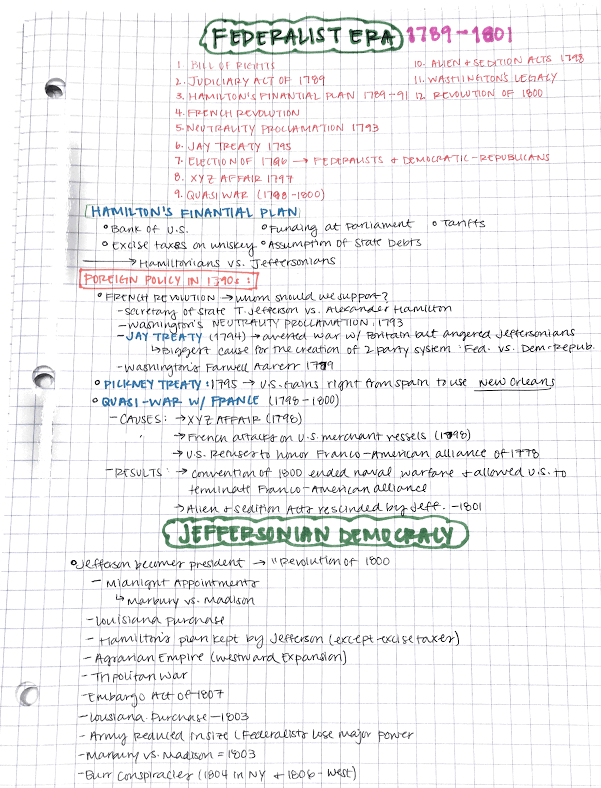 FEDERALIST ERA 1789-1801
1. BILL OF RIGHTS
2. JUDICIARY ACT OF 1789
3. HAMILTON'S FINANCIAL PLAN 1789-91
4. FRENCH REVOLUTION
5. NEUTRALITY PROCLAMATION 1793
6. JAY TREATY 1795
7. ELECTION OF 1796 → FEDERALISTS & DEMOCRATIC-REPUBLICANS
8. XYZ AFFAIR 1797
9. QUASI WAR (1798-1800)
10. ALIEN & SEDITION ACTS 1798
11. WASHINGTON'S LEGACY
12. REVOLUTION OF 1800
HAMILTON'S FINANTIAL PLAN
° Bank of U.S. ° Funding at Parliament ° Tariffs
° Excise taxes on whiskey ° Assumption of State Debts
→ Hamiltonians vs. Jeffersonians
FOREIGN POLICY IN 1790s:
° FRENCH REVOLUTION → whom should we support?
- Secretary of State T. Jefferson vs. Alexander Hamilton
- Washington's NEUTRALITY PROCLAMATION: 1793
- JAY TREATY (1794) → averted war w/ Britain but angered Jeffersonians
↳ Biggest cause for the creation of 2 party system: Fed. vs. Dem-Repub.
- Washington's Farwell
° PICKNEY TREATY: 1795 → U.S. gains right from Spain to use New Orleans
° QUASI-WAR W/ FRANCE (1798-1800)
- CAUSES: → XYZ AFFAIR (1798)
→ French attacks on U.S. merchant vessels (1798)
→ U.S. Refuses to honor Franco-American alliance of 1778
- RESULTS: → Convention of 1800 ended naval warfare & allowed U.S. to
terminate Franco-American alliance
→ Alien & Sedition Acts rescinded by Jeff. - 1801
JEFFERSONIAN DEMOCRACY
° Jefferson becomes president → "Revolution of 1800
- Midnight Appointments
↳ Marbury vs. Madison
- Louisiana Purchase
- Hamilton's plan kept by Jefferson (except excise taxes)
- Agrarian Empire (Westward Expansion)
- Tripolitan War
- Embargo Act of 1807
- Lousiana Purchase - 1803
- Army Reduced in size (Federalists lose major power
- Marbury vs. Madison = 1803
- Burr Conspiracies (1804 in NY & 1806 - West)